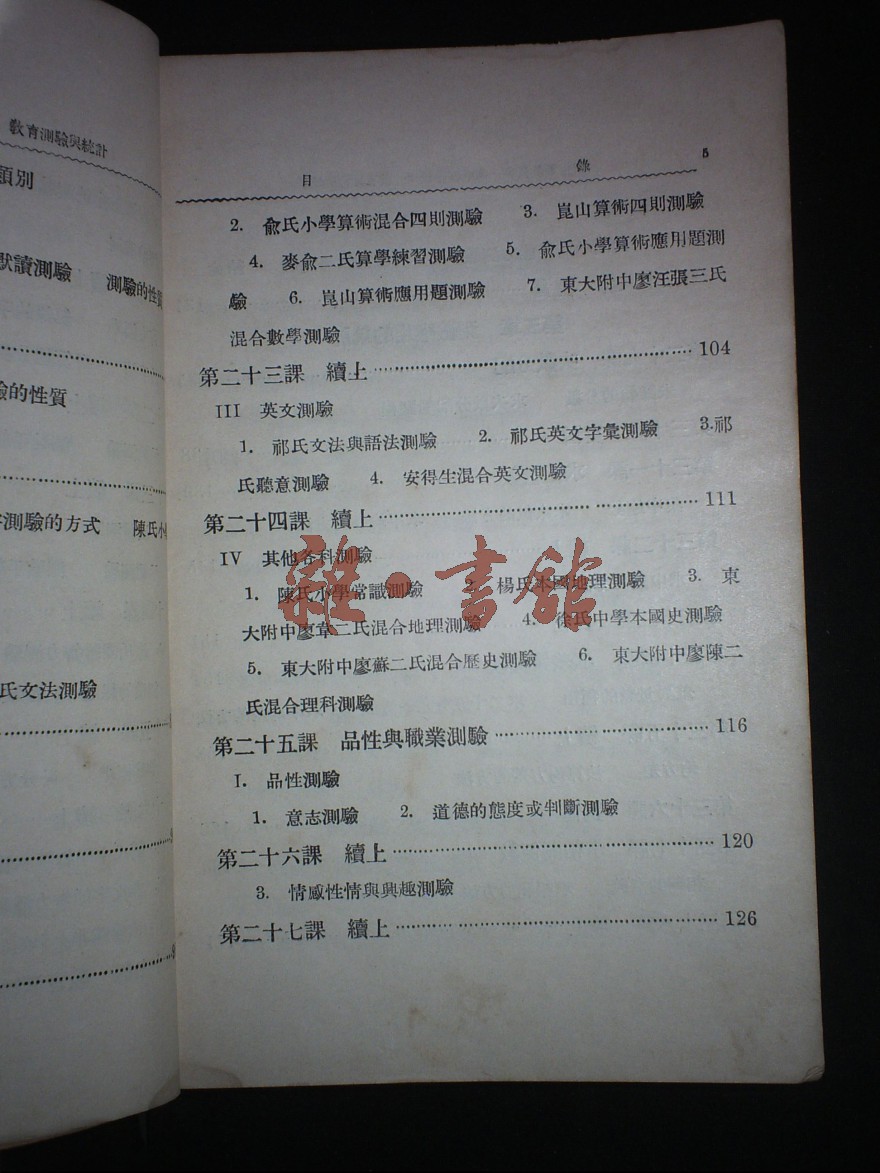 教育測驗與統計
類別
默讀測驗 測驗的性質
驗的性質
字測驗的方式 陳氏小
氏文法測驗
目 錄 5
2. 俞氏小學算術混合四則測驗 3. 崑山算術四則測驗
4. 麥俞二氏算學練習測驗 5. 俞氏小學算術應用題測
驗 6. 崑山算術應用題測驗 7. 東大附中廖汪張三氏
混合數學測驗
第二十三課 續上 104
III 英文測驗
1. 祁氏文法與語法測驗 2. 祁氏英文字彙測驗 3. 祁
氏聽意測驗 4. 安得生混合英文測驗
第二十四課 續上 111
IV 其他各科測驗
1. 陳氏小學常識測驗 2. 楊氏本國地理測驗 3. 東
大附中廖韋二氏混合地理測驗 4. 徐氏中學本國史測驗
5. 東大附中廖蘇二氏混合歷史測驗 6. 東大附中廖陳二
氏混合理科測驗
第二十五課 品性與職業測驗 116
I. 品性測驗
1. 意志測驗 2. 道德的態度或判斷測驗
第二十六課 續上 120
3. 情感性情與興趣測驗
第二十七課 續上 126
雜·書館